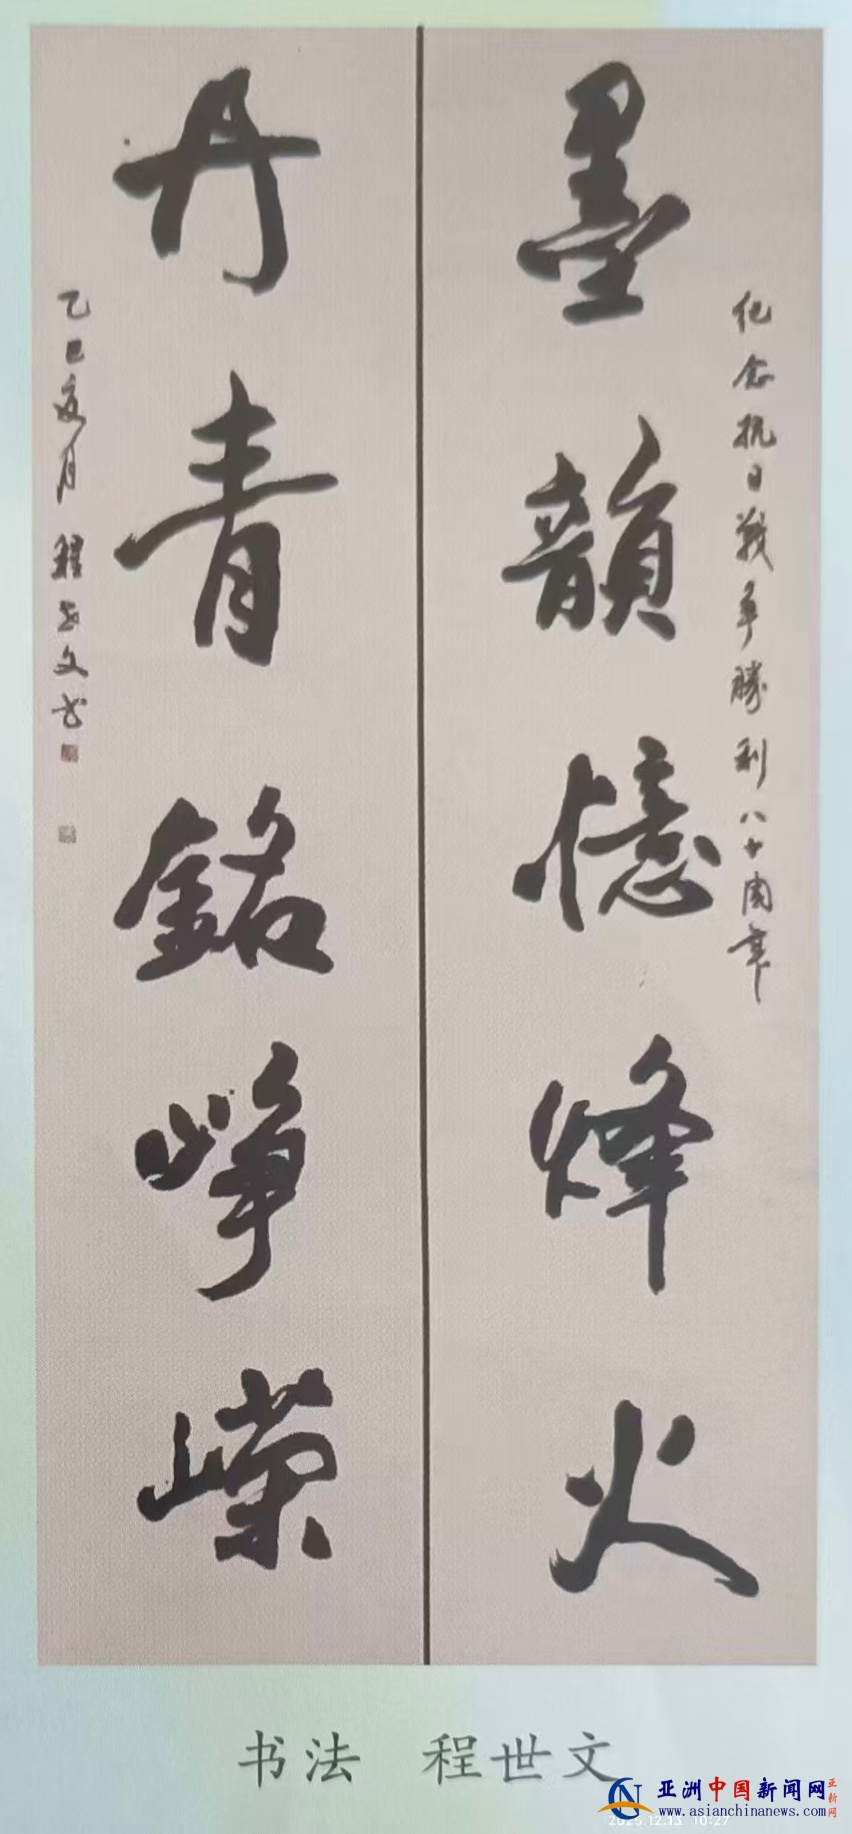 纪念抗日战争勝利八十周年
墨韻憶烽火
丹青銘崢嶸
乙巳夏月 程世文书
书法 程世文
亚洲中国新闻网
亚新网
www.asianchinanews.com
2025.12.13 10:27